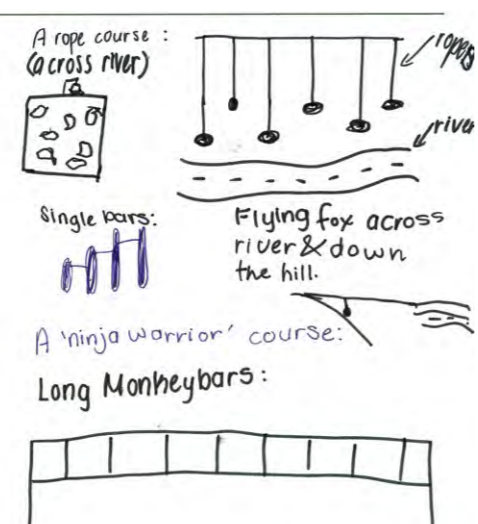 A rope course :
(across river)
ropes
river
Single bars:
Flying fox across
river & down
the hill.
A 'ninja warrior' course:
Long Monkeybars: